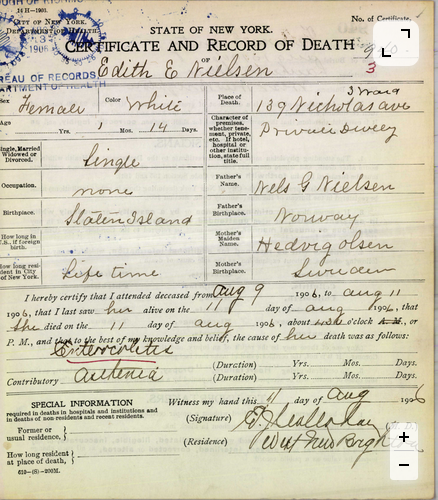 14 H-1903.
CITY OF NEW YORK.
DEPARTMENT OF HEALTH.
1906
BUREAU OF RECORDS
DEPARTMENT OF HEALTH
STATE OF NEW YORK.
No. of Certificate.
CERTIFICATE AND RECORD OF DEATH
OF
3
Edith E Nielsen
Sex Female Color White
Age Yrs. 1 Mos. 14 Days.
Single, Married Widowed or Divorced. Single
Occupation. none
Birthplace. Staten Island
How long in U.S., if foreign birth.
How long resident in City of New York. Life time
3 Ward
Place of Death. 139 Nicholas ave
Character of premises, whether tenement, private, etc. If hotel, hospital or other institution, state full title. Private
Father's Name. Nels G Nielsen
Father's Birthplace. Norway
Mother's Maiden Name. Hedvig Olsen
Mother's Birthplace. Sweden
I hereby certify that I attended deceased from aug 9 1906, to aug 11
1906, that I last saw her alive on the 11 day of aug 1906, that
She died on the 11 day of aug 1906, about o'clock A.M., or
P. M., and that to the best of my knowledge and belief, the cause of her death was as follows:
Enterocolitis
(Duration) Yrs. Mos. Days.
Contributory (Duration) Yrs. Mos. Days.
SPECIAL INFORMATION
required in deaths in hospitals and institutions and
in deaths of non residents and recent residents.
Former or usual residence,
How long resident at place of death,
619-(S)-200M.
Witness my hand this 11 day of aug 1906
(Signature)
(Residence) West
+
−